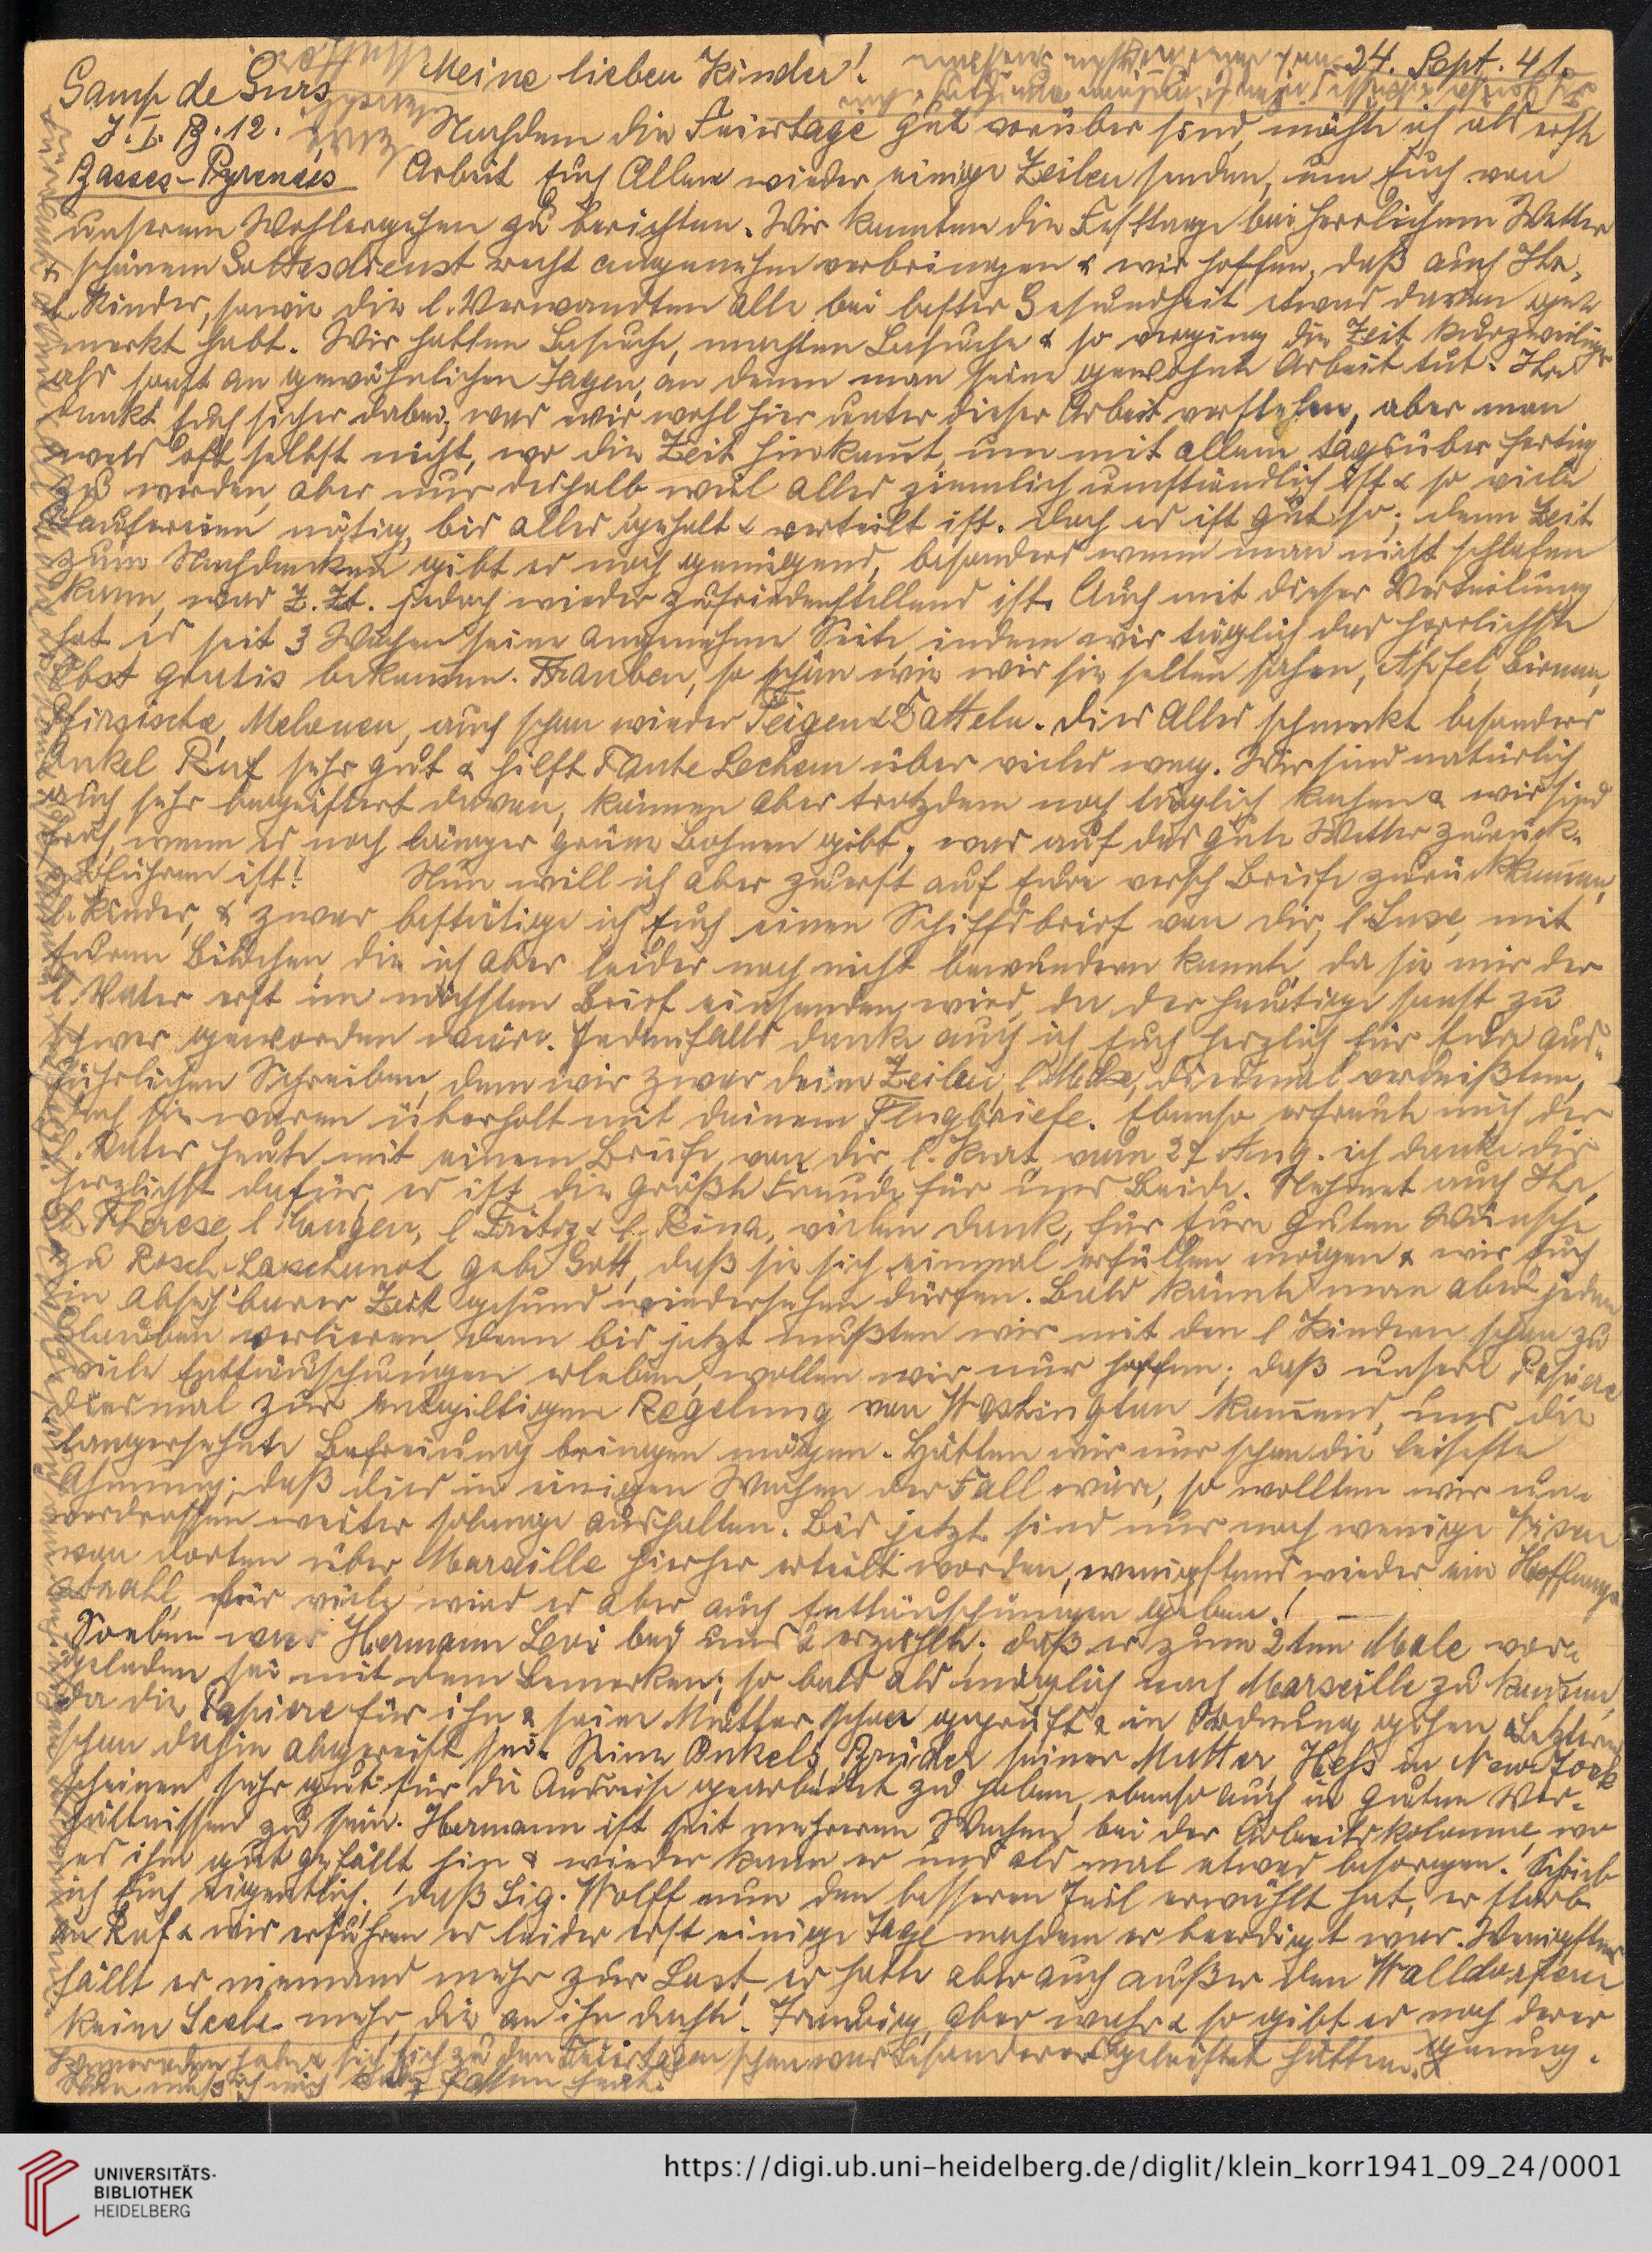 Camp de Gurs Meine lieben Kinder! 24. Sept. 41.
J. I. B. 12. Nachdem die Feiertage gut vorüber sind, möchte ich als erste
Basses-Pyrenées Arbeit Euch Allen wieder einige Zeilen senden, um Euch von
unserem Wohlergehen zu berichten. Wir konnten die Festtage bei herrlichem Wetter
& schönem Gottesdienst recht angenehm verbringen & wir hoffen, daß auch Ihr,
l. Kinder, sowie die l. Verwandten alle bei bester Gesundheit etwas davon ge-
merkt habt. Wir hatten Besuche, machten Besuche & so verging die Zeit kurzweiliger
als sonst an gewöhnlichen Tagen, an denen man seine gewohnte Arbeit tut. Ihr
denkt Euch sicher dabei, was wir wohl hier unter dieser Arbeit verstehen, aber man
weis oft selbst nicht, wo die Zeit hinkomt, um mit allem tagsüber fertig
zu werden, aber nur deshalb weil alles ziemlich umständlich ist & so viele
Laufereien nötig, bis alles geholt & verteilt ist. Doch es ist gut so; denn Zeit
zum Nachdenken gibt es noch genügend, besonders wenn man nicht schlafen
kann, was z. Zt. jedoch wieder zufriedenstellend ist. Auch mit dieser Verteilung
hat es seit 3 Wochen seine angenehme Seite, indem wir täglich das herrlichste
Obst gratis bekommen. Trauben, so schön wie wir sie selten sahen, Äpfel, Birnen,
Pfirsische, Melonen, auch schon wieder Feigen & Datteln. Dies Alles schmeckt besonders
Onkel Ruf sehr gut & hilft Tante Lechem über vieles weg. Wir sind natürlich
auch sehr begeistert davon, können aber trotzdem noch täglich kochen & wir sind
froh, wenn es noch länger grüne Bohnen gibt, was auf das gute Wetter zurück-
zuführen ist! Nun will ich aber zuerst auf Eure versch Briefe zurückkommen,
l. Kinder, & zwar bestätige ich Euch einen Schiffsbrief von dir, l. Luse, mit
Euren Bildchen, die ich aber leider noch nicht bewundern konnte, da sie mir der
l. Vater erst im nächsten Brief einsenden wird, da der heutige sonst zu
schwer geworden wäre. Jedenfalls danke auch ich Euch herzlich für Eure aus-
führlichen Schreiben, denn wir zwar deine Zeilen, diesmal vermißten,
doch sie waren überholt mit deinem Flugbriefe. Ebenso erfreute mich der
l. Vater heute mit einem Briefe von dir, l. Kurt vom 27 Aug. ich danke dir
herzlichst dafür, es ist die größte Freude für uns Beide. Nehmet auch Ihr,
l. Therese, l. Eugen, l Fritz & l. Rina, vielen Dank, für Eure guten Wünsche
zu Rosch-Haschanoh gebe Gott, daß sie sich einmal erfüllen mögen & wir Euch
in absehbarer Zeit gesund wiedersehen dürfen. Bald könnte man aber jeden
Glauben verlieren, denn bis jetzt mußten wir mit den l Kindern schon zu
viele Enttäuschungen erleben, wollen wir nur hoffen; daß unsere Papiere
diesmal zur entgiltigen Regelung von Washington kommend, uns die
langersehnte Befreiung bringen mögen. Hätten wir nur schon die leiseste
Ahnung; daß dies in einigen Wochen der Fall wäre, so wollten wir un-
verdrossen weiter solange aushalten. Bis jetzt sind nur noch wenige Visen
von dorten über Marseille hierher erteilt worden, wenigstens wieder ein Hoffnungs-
strahl, für viele wird es aber auch Enttäuschungen geben!
Soeben war Hermann Levi bei uns & erzählte; daß er zum 2ten Male vor-
geladen sei mit dem Bemerken; so bald als möglich nach Marseille zu kommen,
da die Papiere für ihn & seine Mutter schon geprüft & in Ordnung gehen & Letztere
schon dahin abgereist sei. Seine Onkels, Brüder seiner Mutter, Heß in New-York
scheinen sehr gut für die Ausreise gearbeitet zu haben, ebenso auch in guten Ver-
hältnissen zu sein. Hermann ist seit mehreren Wochen bei der Arbeitskolonne, wo
es ihm gut gefällt hin & wieder kann er uns als mal etwas besorgen. Schrieb
ich Euch eigentlich; daß Sig. Wolff nun den besseren Teil erwählt hat, er starb
in & wir erfuhren es leider erst einige Tage nachdem er beerdigt war. Wenigstens
fällt er niemand mehr zur Last, er hatte aber auch außer den Walldorfern
keine Seele mehr, die an ihn dachte. Traurig, aber wahr & so gibt es noch derer
genug.
haben sich zu den Feiertagen schon was Besonderes geleistet hatten.
Nun muß ich mich kurz fassen
UNIVERSITÄTS-
BIBLIOTHEK
HEIDELBERG
https://digi.ub.uni-heidelberg.de/diglit/klein_korr1941_09_24/0001